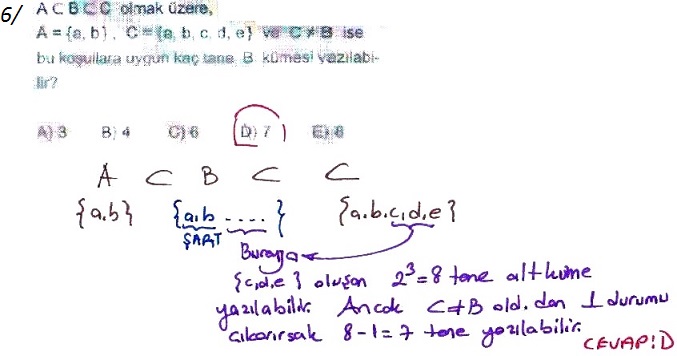 6/ A ⊂ B ⊂ C olmak üzere,
A = {a, b}, C = {a, b, c, d, e} ve C ≠ B ise
bu koşullara uygun kaç tane B kümesi yazılabi-
lir?
A) 3 B) 4 C) 6 D) 7 E) 8
A ⊂ B ⊂ C
{a,b} {a,b ....} {a.b.c,d,e}
ŞART
Buraya
{c,d,e} oluşan 2³=8 tane altküme
yazılabilir. Ancak C≠B old. dan 1 durumu
çıkarırsak 8-1=7 tane yazılabilir.
CEVAP:D